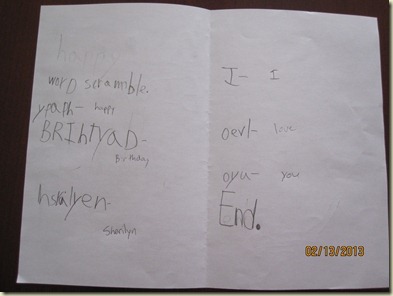 happy
word scramble.
ypaph- happy
BRIhtyaD-
Birthday
hsralyen-
Sharilyn
I- I
oevl- love
oyu- you
End.
02/13/2013